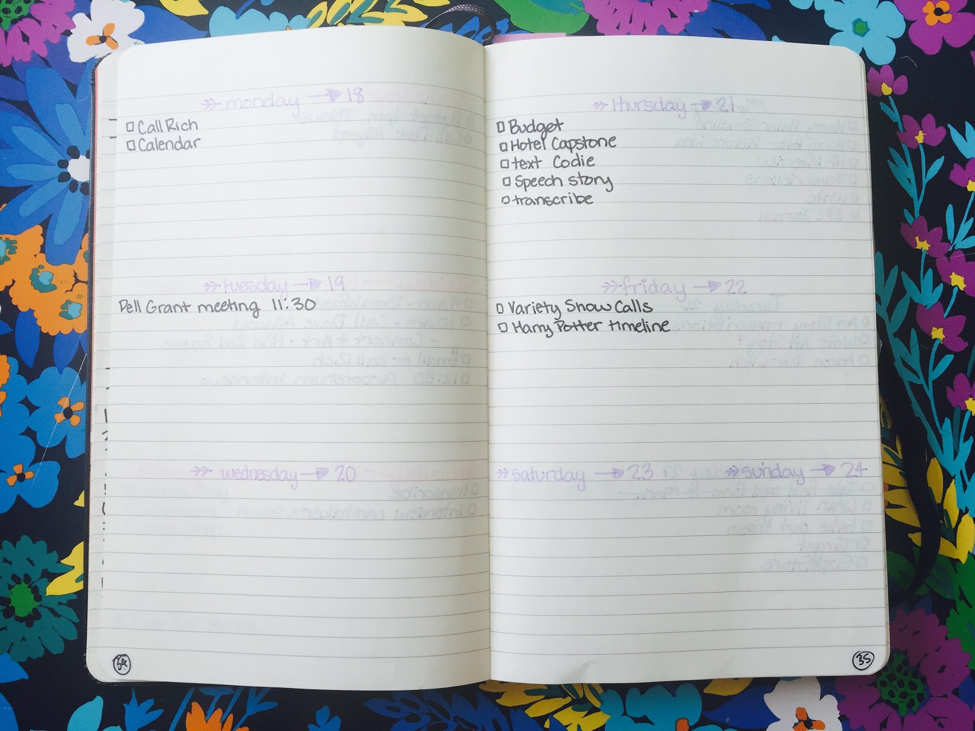 monday 18
☐ Call Rich
☐ Calendar
tuesday 19
Pell Grant meeting 11:30
wednesday 20
34
thursday 21
☐ Budget
☐ Hotel Capstone
☐ text Codie
☐ Speech story
☐ transcribe
friday 22
☐ Variety Show Calls
☐ Harry Potter timeline
saturday 23 sunday 24
35